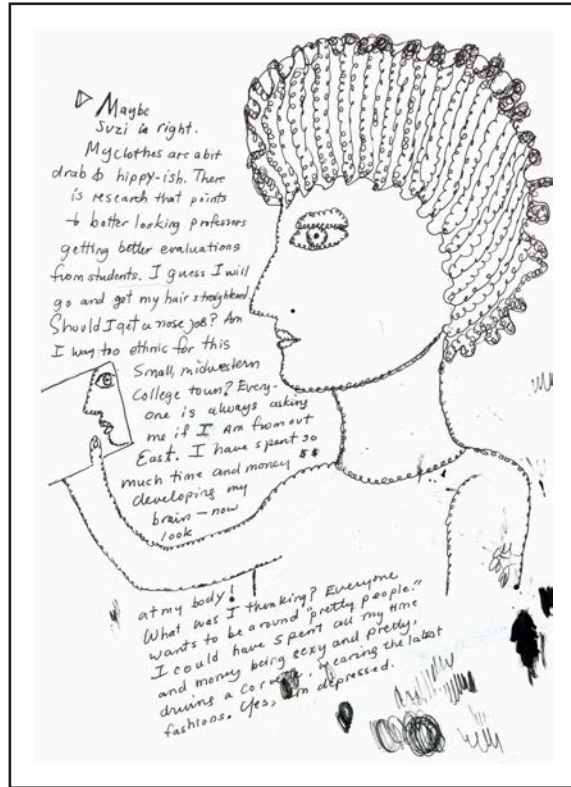 Maybe
Suzi is right.
My clothes are a bit
drab & hippy-ish. There
is research that points
to better looking professors
getting better evaluations
from students. I guess I will
go and get my hair straightened
Should I get a nose job? Am
I way too ethnic for this
Small, midwestern
College town? Every-
one is always asking
me if I Am from out
East. I have spent so
much time and money $$
developing my
brain — now
look
at my body!
What was I thinking? Everyone
wants to be around "pretty people."
I could have spent all my time
and money being sexy and pretty,
driving a corvette, wearing the latest
fashions. Yes, I'm depressed.